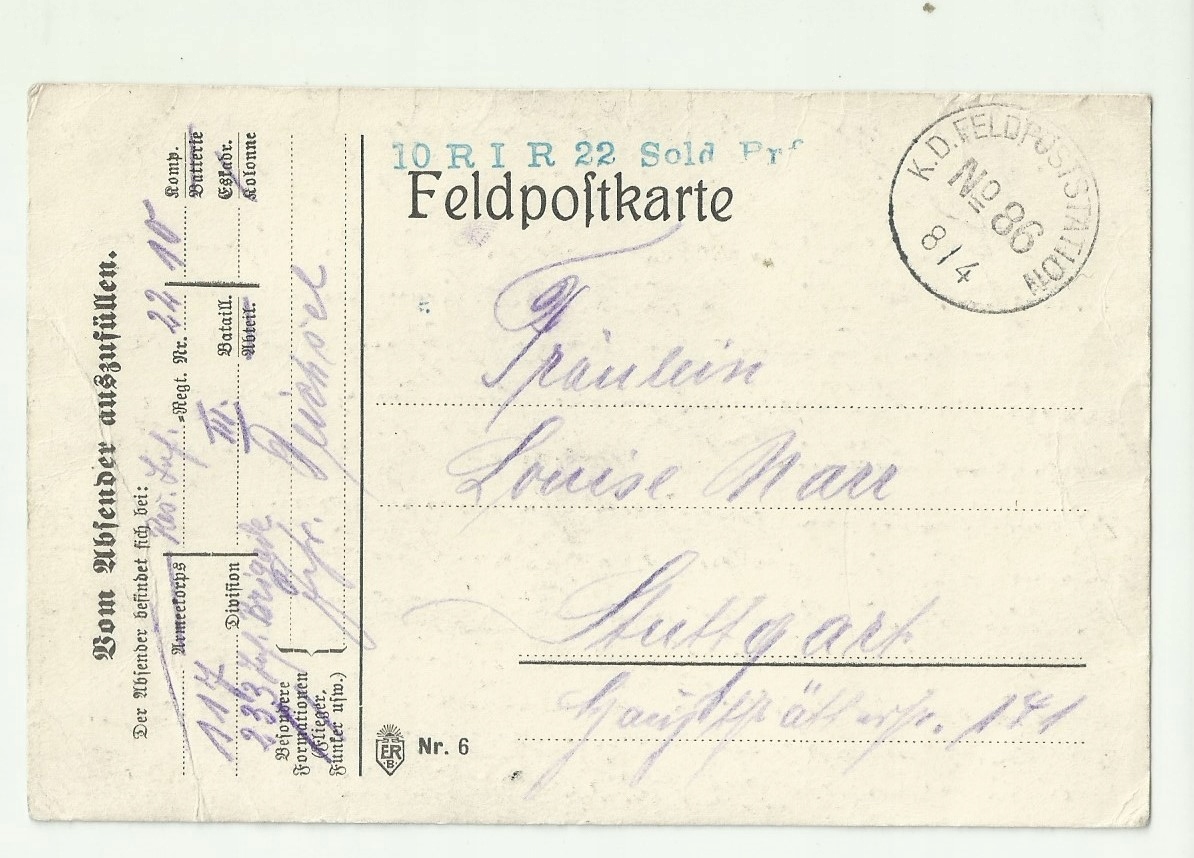 10 R I R 22 Sold Prf
Feldpostkarte
K.D. FELDPOSTSTATION
No 86
8/4
Fräulein
Louise Marr
Stuttgart
Hauptstätterstr. 171
ER
B
Nr. 6
Vom Absender auszufüllen.
Der Absender befindet sich bei:
Armeekorps Res. Inf. -Regt. Nr. 22 10 Komp.
Batterie
117 Division III. Bataill. Eskadr.
Abteil. Kolonne
233 Inf. Brigade
Besondere
Formationen
(Flieger,
Funker usw.)